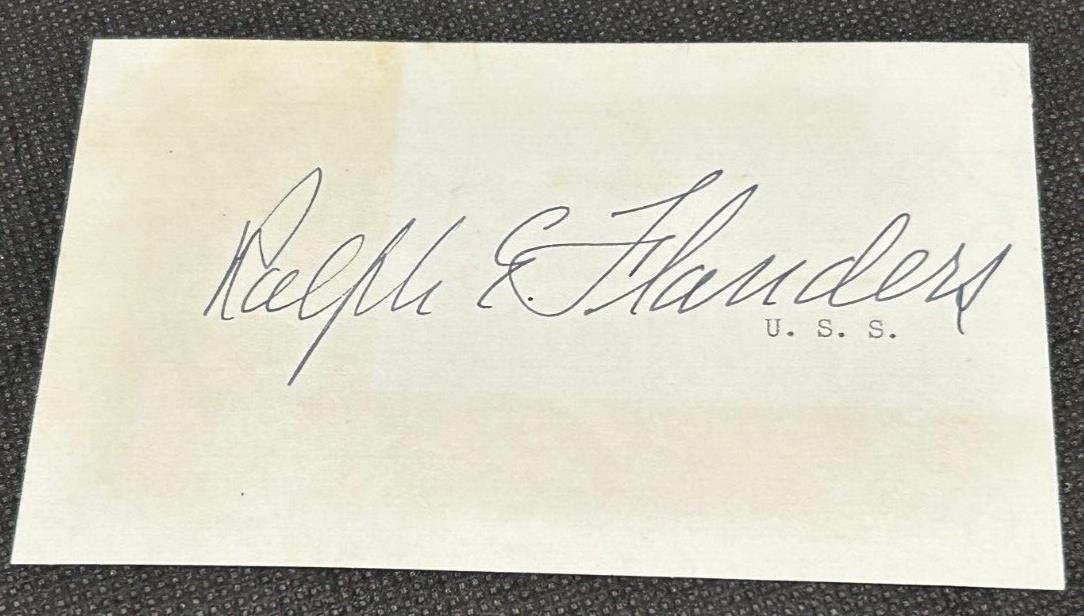 Ralph E. Flanders
U. S. S.